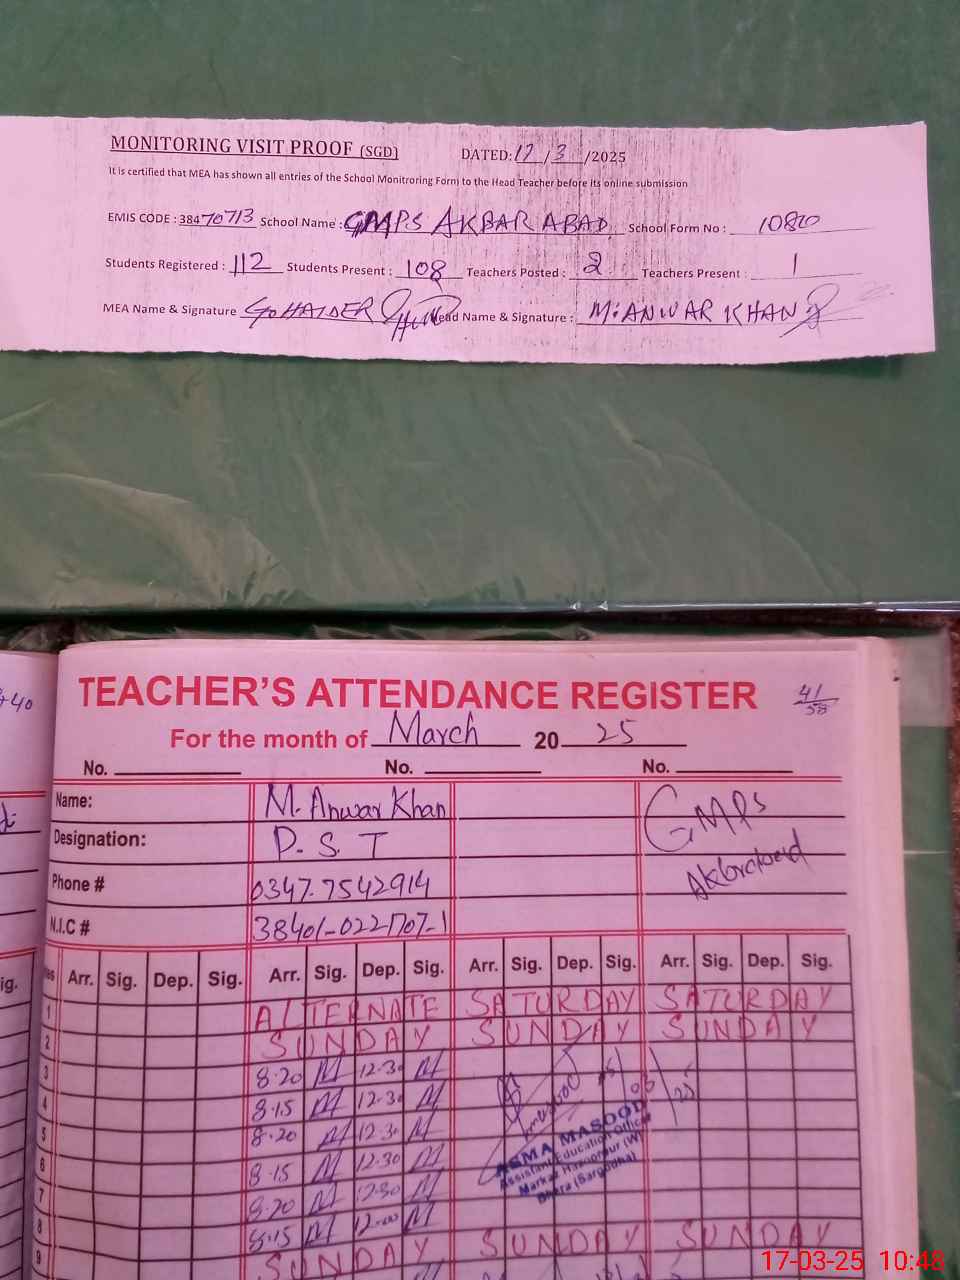 MONITORING VISIT PROOF (SGD) DATED: 17/3/2025
It is certified that MEA has shown all entries of the School Monitroring Form to the Head Teacher before its online submission
EMIS CODE : 38470713 School Name : GMPS AKBAR ABAD School Form No :
Students Registered : 112 Students Present : 108 Teachers Posted : 2 Teachers Present : 1
MEA Name & Signature HAIDER Head Name & Signature : M. ANWAR KHAN
TEACHER'S ATTENDANCE REGISTER 41/58
For the month of March 2025
No. No. No.
Name: M. Anwar Khan GMPS
Designation: P. S. T Akbarabad
Phone # 0347-7542914
N.I.C #
Arr. Sig. Dep. Sig. Arr. Sig. Dep. Sig. Arr. Sig. Dep. Sig. Arr. Sig. Dep. Sig.
1 ALTERNATE SATURDAY SATURDAY
2 SUNDAY SUNDAY SUNDAY
3 8.20 12.30
4 8.15 12.30
5 8.20 12.30
6 8.15 12.30
7 8.20 12.30
8 8.15 12.00
9 SUNDAY SUNDAY SUNDAY
ASMA MASOOD
Assistant Education Officer
Bhera (Sargodha)
17-03-25 10:48